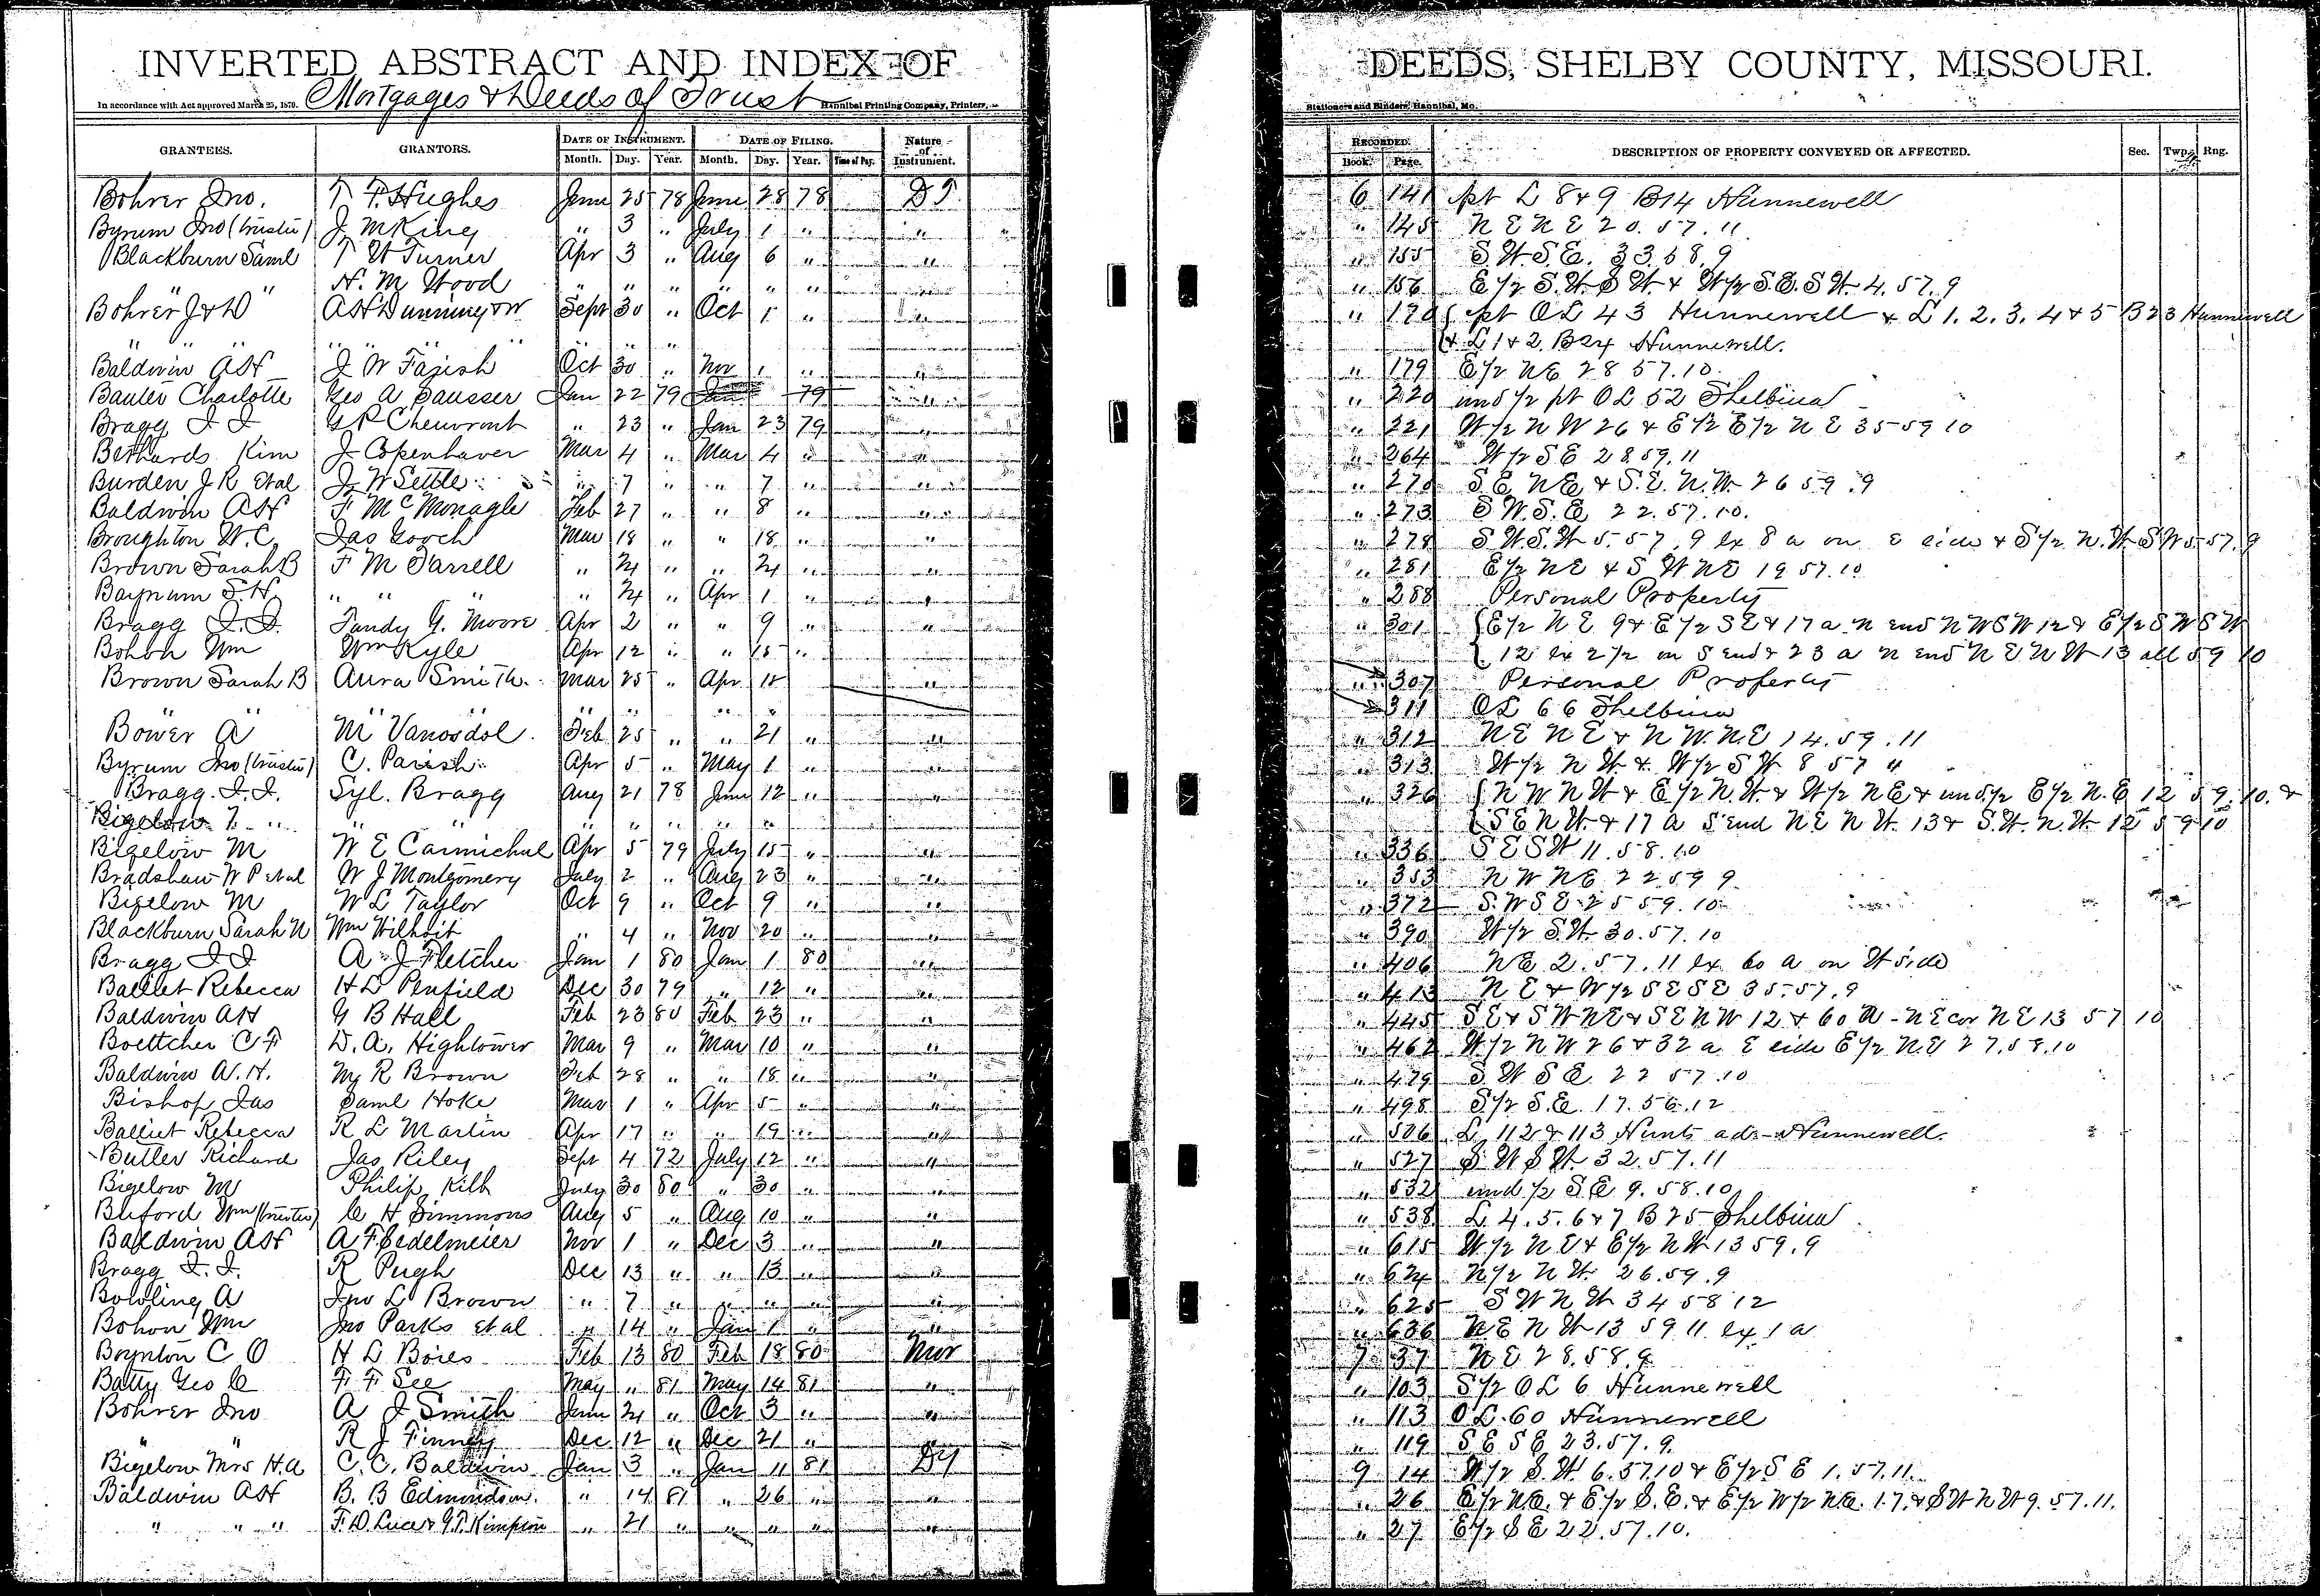 INVERTED ABSTRACT AND INDEX OF DEEDS, SHELBY COUNTY, MISSOURI.
In accordance with Act approved March 25, 1870. Mortgages & Deeds of Trust Hannibal Printing Company, Printers, Stationers and Binders, Hannibal, Mo.
GRANTEES. GRANTORS. DATE OF INSTRUMENT. DATE OF FILING. Nature of Instrument. RECORDED. DESCRIPTION OF PROPERTY CONVEYED OR AFFECTED. Sec. Twp. Rng.
Month. Day. Year. Month. Day. Year. Time of Day. Book. Page.
Bohrer Jno. T F. Hughes June 25 78 June 28 78 D T 6 141 pt L 8 & 9 B 14 Hunnewell
Byrum Jno (trustee) J M King " 3 " July 1 " " " 145 N E N E 20. 57. 11
Blackburn Saml T W Turner Apr 3 " Aug 6 " " " 155 S. W S. E. 33. 58. 9
" " H. M Wood " " " " " " " " 156 E 1/2 S. W. S W. & W 1/2 S. E. S W. 4. 57. 9
Bohrer J & D A H Dunning & W Sept 30 " Oct 1 " " " 170 { pt O L 43 Hunnewell & L 1. 2. 3. 4 & 5 B 23 Hunnewell
" " " " " " " " { & L 1 & 2. B 24 Hunnewell.
Baldwin A H J W Farish Oct 30 " Nov 1 " " " 179 E 1/2 N E 28 57. 10
Bauter Charlotte Geo A Sausser Jan 22 79 Jan 79 " " 220 und 1/2 pt O L 52 Shelbina
Bragg J J G P Chenvront " 23 " Jan 23 79 " " 221 W 1/2 N W 26 & E 1/2 E 1/2 N E 35 59 10
Bethards Kim J Copenhaver Mar 4 " Mar 4 " " " 264 W 1/2 S E 28. 59. 11
Burden J R Et al J W Settle " 7 " " 7 " " " 270 S. E N E & S. E. N. W. 26 59. 9
Baldwin A H F McMonagle Feb 27 " " 8 " " " 273 S. W. S. E. 22. 57. 10.
Broughton W. C. Jas Gooch Mar 18 " " 18 " " " 278 S W. S. W 5. 57. 9 ex 8 a on E side & S 1/2 N. W. S W 5. 57. 9
Brown Sarah B F M Farrell " 24 " " 24 " " " 281 E 1/2 N E & S W N E 19 57. 10
Baynum S. H. " " " " 24 " Apr 1 " " " 288 Personal Property
Bragg J. J. Tandy G. Moore Apr 2 " " 9 " " " 301 { E 1/2 N E 9 & E 1/2 S E & 17 a N end N W S W 12 & E 1/2 S W S W
Bohon Wm Wm Kyle Apr 12 " " 15 " { 12 ex 2 1/2 on S end & 23 a N end N E N W 13 all 59 10
Brown Sarah B Aura Smith Mar 25 " Apr 15 " " 307 Personal Property
" " " " " " " " " 311 O L 66 Shelbina
Bower A M Vanosdol Feb 25 " " 21 " " " 312 N E N E & N W. N. E 14. 59. 11
Byrum Jno (trustee) C. Parish Apr 5 " May 1 " " " 313 W 1/2 N W. & W 1/2 S W. 8 57 "
Bragg. J. J. Syl. Bragg Aug 21 78 June 12 " " " 326 { N W N W & E 1/2 N. W. & W 1/2 N E & und 1/2 E 1/2 N. E 12 59. 10. &
Bigelow " " " " " " " " { S E N W. & 17 a S end N E N W. 13 & S. W. N. W. 12 59 10
Bigelow M W E Carmichal Apr 5 79 July 15 " " " 336 S E S W 11. 58. 10
Bradshaw W P et al W J Montgomery July 2 " Aug 23 " " " 353 N W N E 22 59 9
Bigelow M W L Taylor Oct 9 " Oct 9 " " " 372 S. W S E 25 59. 10
Blackburn Sarah N Wm Wilhoit " 4 " Nov 20 " " " 390 W 1/2 S. W. 30. 57. 10
Bragg J J A J Fletcher Jan 1 80 Jan 1 80 " " 406 N E 2. 57. 11 ex 60 a on W side
Balliet Rebecca H L Penfield Dec 30 79 " 12 " " " 413 N E & W 1/2 S E S E 35. 57. 9
Baldwin A H G B Hall Feb 23 80 Feb 23 " " " 445 S E & S W N E & S E N W 12 & 60 a - N E cor N E 13 57 10
Boettcher C F D. A. Hightower Mar 9 " Mar 10 " " " 462 W 1/2 N W 26 & 32 a E side E 1/2 N. E 27. 58. 10
Baldwin A. H. M R Brown Feb 28 " " 18 " " " 479 S. W S E. 22 57. 10
Bishop Jas Saml Hoke Mar 1 " Apr 5 " " " 498 S 1/2 S. E. 17. 56. 12
Balliet Rebecca R L Martin Apr 17 " " 19 " " " 506 L 112 & 113 Hunts ad - Hunnewell.
Butler Richard Jas Riley Sept 4 72 July 12 " " " 527 S W S W. 32. 57. 11
Bigelow M Philip Kilb July 30 80 " 30 " " " 532 und 1/2 S. E 9. 58. 10
Buford Wm (trustee) C H Simmons Aug 5 " Aug 10 " " " 538 L. 4. 5. 6 & 7 B 25 Shelbina
Baldwin A H A F Eedelmeier Nov 1 " Dec 3 " " " 615 W 1/2 N E & E 1/2 N W 13 59. 9
Bragg J. J. R Pugh Dec 13 " " 13 " " " 624 N 1/2 N W. 26. 59. 9
Bowling A Jno L Brown " 7 " " " " " " 625 S W N W 34 58 12
Bohon Wm Jno Parks et al " 14 " Jan 1 " " " 636 N. E N W 13 59 11 ex 1 a
Boynton C O H L Boies Feb 13 80 Feb 18 80 Mor 7 37 N E 28. 58. 9
Batty Geo C F F See May " 81 May 14 81 " " 103 S 1/2 O L 6 Hunnewell
Bohrer Jno A J Smith June 24 " Oct 3 " " " 113 O L. 60 Hunnewell
" " R J Finney Dec 12 " Dec 21 " " " 119 S E S E 23. 57. 9.
Bigelow Mrs H. A C. C. Baldwin Jan 3 " Jan 11 81 D T 9 14 W 1/2 S. W. 6. 57. 10 & E 1/2 S E 1. 57. 11.
Baldwin A H B. B Edmondson. " 14 81 " 26 " " " 26 E 1/2 N E. & E 1/2 S. E. & E 1/2 W 1/2 N E. 17. & S W N W 9. 57. 11.
" " " F. D. Luce & G. T. Kimpton " 21 " " " " " " 27 E 1/2 S E 22. 57. 10.